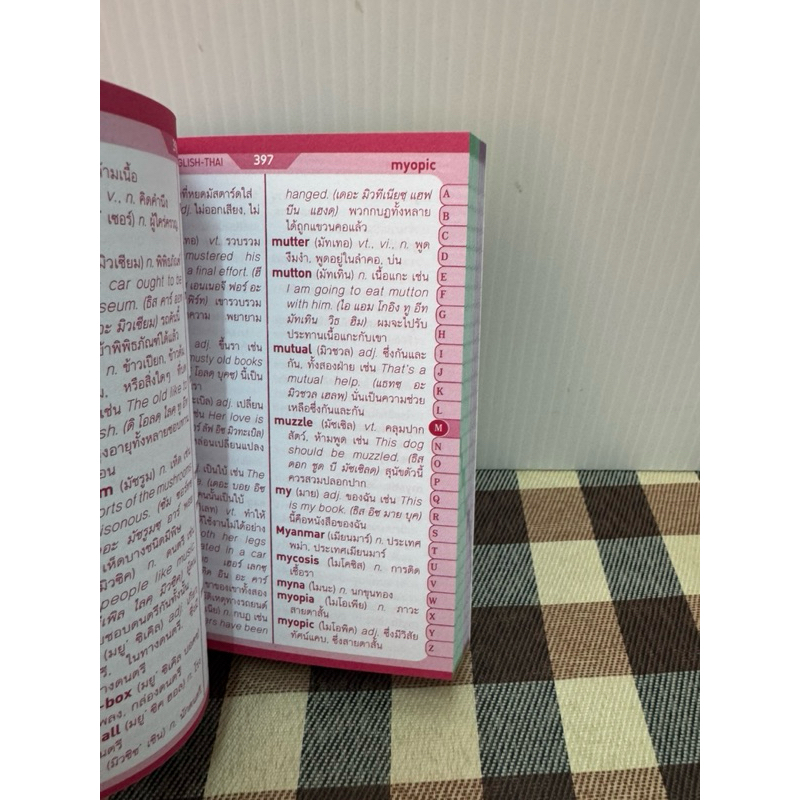 ามเนื้อ
v., n. คิดคำนึง
เซอร์) n. ผู้ใคร่ครวญ
มิวเซียม) n. พิพิธภัณฑ์
car ought to be
seum. (ธิส คาร์ ออท
อะ มิวเซียม) รถคันนี้
าพิพิธภัณฑ์ได้แล้ว
n. ข้าวเปียก, ข้าวต้ม
หรือสิ่งใดๆ ที่บด
เช่น The old like to
sh. (ดิ โอลด ไลค ทู อีท
งอายุทั้งหลายชอบทาน
อน
m (มัชรูม) n. เห็ด เช่น
orts of the mushrooms
isonous.
เห็ดบางชนิดมีพิษ
วซิค) n. ดนตรี เช่น
people like music.
ชอบดนตรีกันทั้งนั้น
adj.
ในทางดนตรี
างดนตรี
-box (มยู' ซิเคิล บอคซ)
เพลง, กล่องดนตรี
all (มยู' ซิค ฮอล) n. โรง
นตรี
GLISH-THAI 397
ที่หยดมัสตาร์ดใส่
dj. ไม่ออกเสียง, ไม่
vt. รวบรวม
mustered his
a final effort. (ฮี
เอนเนอจิ ฟอร์ อะ
เขารวบรวม
ความ พยายาม
adj. ขึ้นรา เช่น
musty old books
โอลด บุคซ) นี้เป็น
รา
adj. เปลี่ยน
เช่น Her love is
ลัฟ อิซ มิวทะเบิล)
หล่อนเปลี่ยนแปลง
เป็นใบ้ เช่น The
(เดอะ บอย อิซ
คนนั้นเป็นใบ้
vt. ทำให้
ใช้งานไม่ได้อย่าง
both her legs
ated in a car
เฮอร์ เลกซ
ดิด อิน อะ คาร์
ขาของเขาทั้งสอง
บัติเหตุทางรถยนต์
n. กบฏ เช่น
ers have been
myopic
hanged. (เดอะ มิวทีเนียซ แฮฟ
บีน แฮงด) พวกกบฏทั้งหลาย
ได้ถูกแขวนคอแล้ว
mutter (มัทเทอ) vt., vi., n. พูด
งึมงำ, พูดอยู่ในลำคอ, บ่น
mutton (มัทเทิน) n. เนื้อแกะ เช่น
I am going to eat mutton
with him. (ไอ แอม โกอิง ทู อีท
มัทเทิน วิธ ฮิม) ผมจะไปรับ
ประทานเนื้อแกะกับเขา
mutual (มิวชวล) adj. ซึ่งกันและ
กัน, ทั้งสองฝ่าย เช่น That's a
mutual help. (แธทซ อะ
มิวชวล เฮลพ) นั่นเป็นความช่วย
เหลือซึ่งกันและกัน
muzzle (มัซเซิล) vt. คลุมปาก
สัตว์, ห้ามพูด เช่น This dog
should be muzzled. (ธิส
ดอก ชูด บี มัซเซิลด) สุนัขตัวนี้
ควรสวมปลอกปาก
my (มาย) adj. ของฉัน เช่น This
is my book. (ธิส อิซ มาย บุค)
นี้คือหนังสือของฉัน
Myanmar (เมียนมาร์) n. ประเทศ
พม่า, ประเทศเมียนมาร์
mycosis (ไมโคซิส) n. การติด
เชื้อรา
myna (ไมนะ) n. นกขุนทอง
myopia (ไมโอเพีย) n. ภาวะ
สายตาสั้น
myopic (ไมโอพิค) adj. ซึ่งมีวิสัย
ทัศน์แคบ, ซึ่งสายตาสั้น
A
B
C
D
E
F
G
H
I
J
K
L
M
N
O
P
Q
R
S
T
U
V
W
X
Y
Z